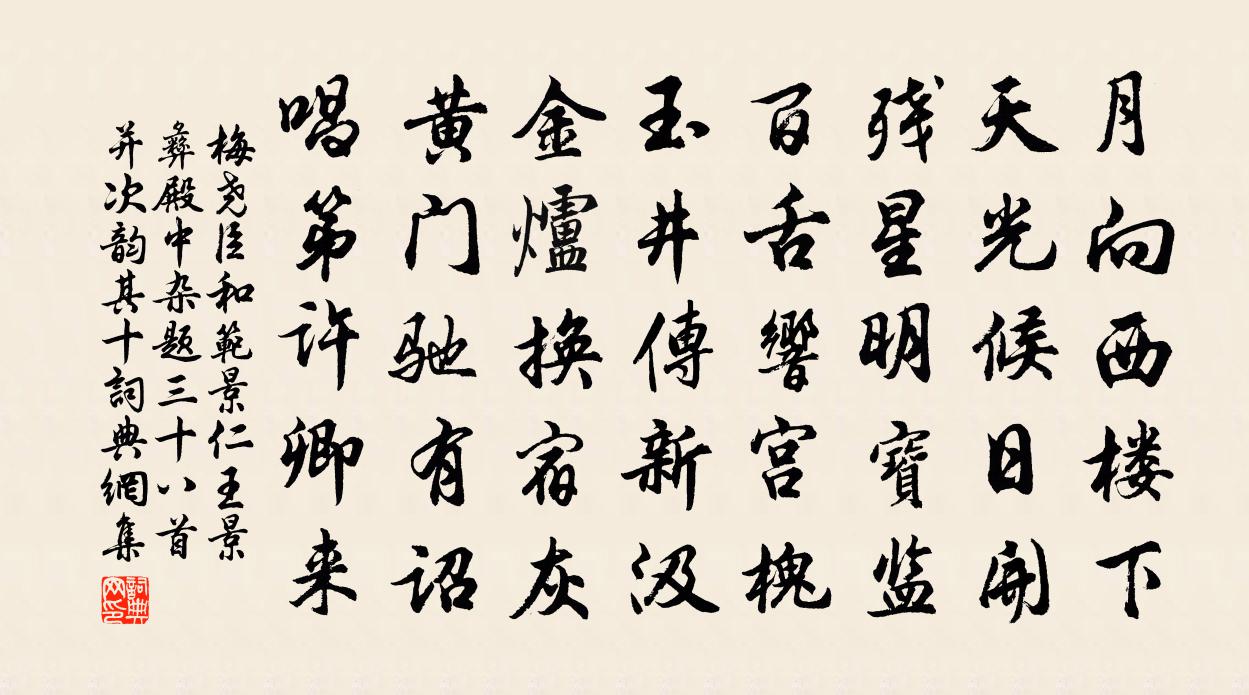 月向西楼下
天光候日开
残星明寶监
百舌響宫槐
玉井傳新汲
金爐换宿灰
黄门驰有诏
唱第许卿来
梅尧臣和範景仁王景
彝殿中杂题三十八首
并次韵其十詞典網集
詞典网印